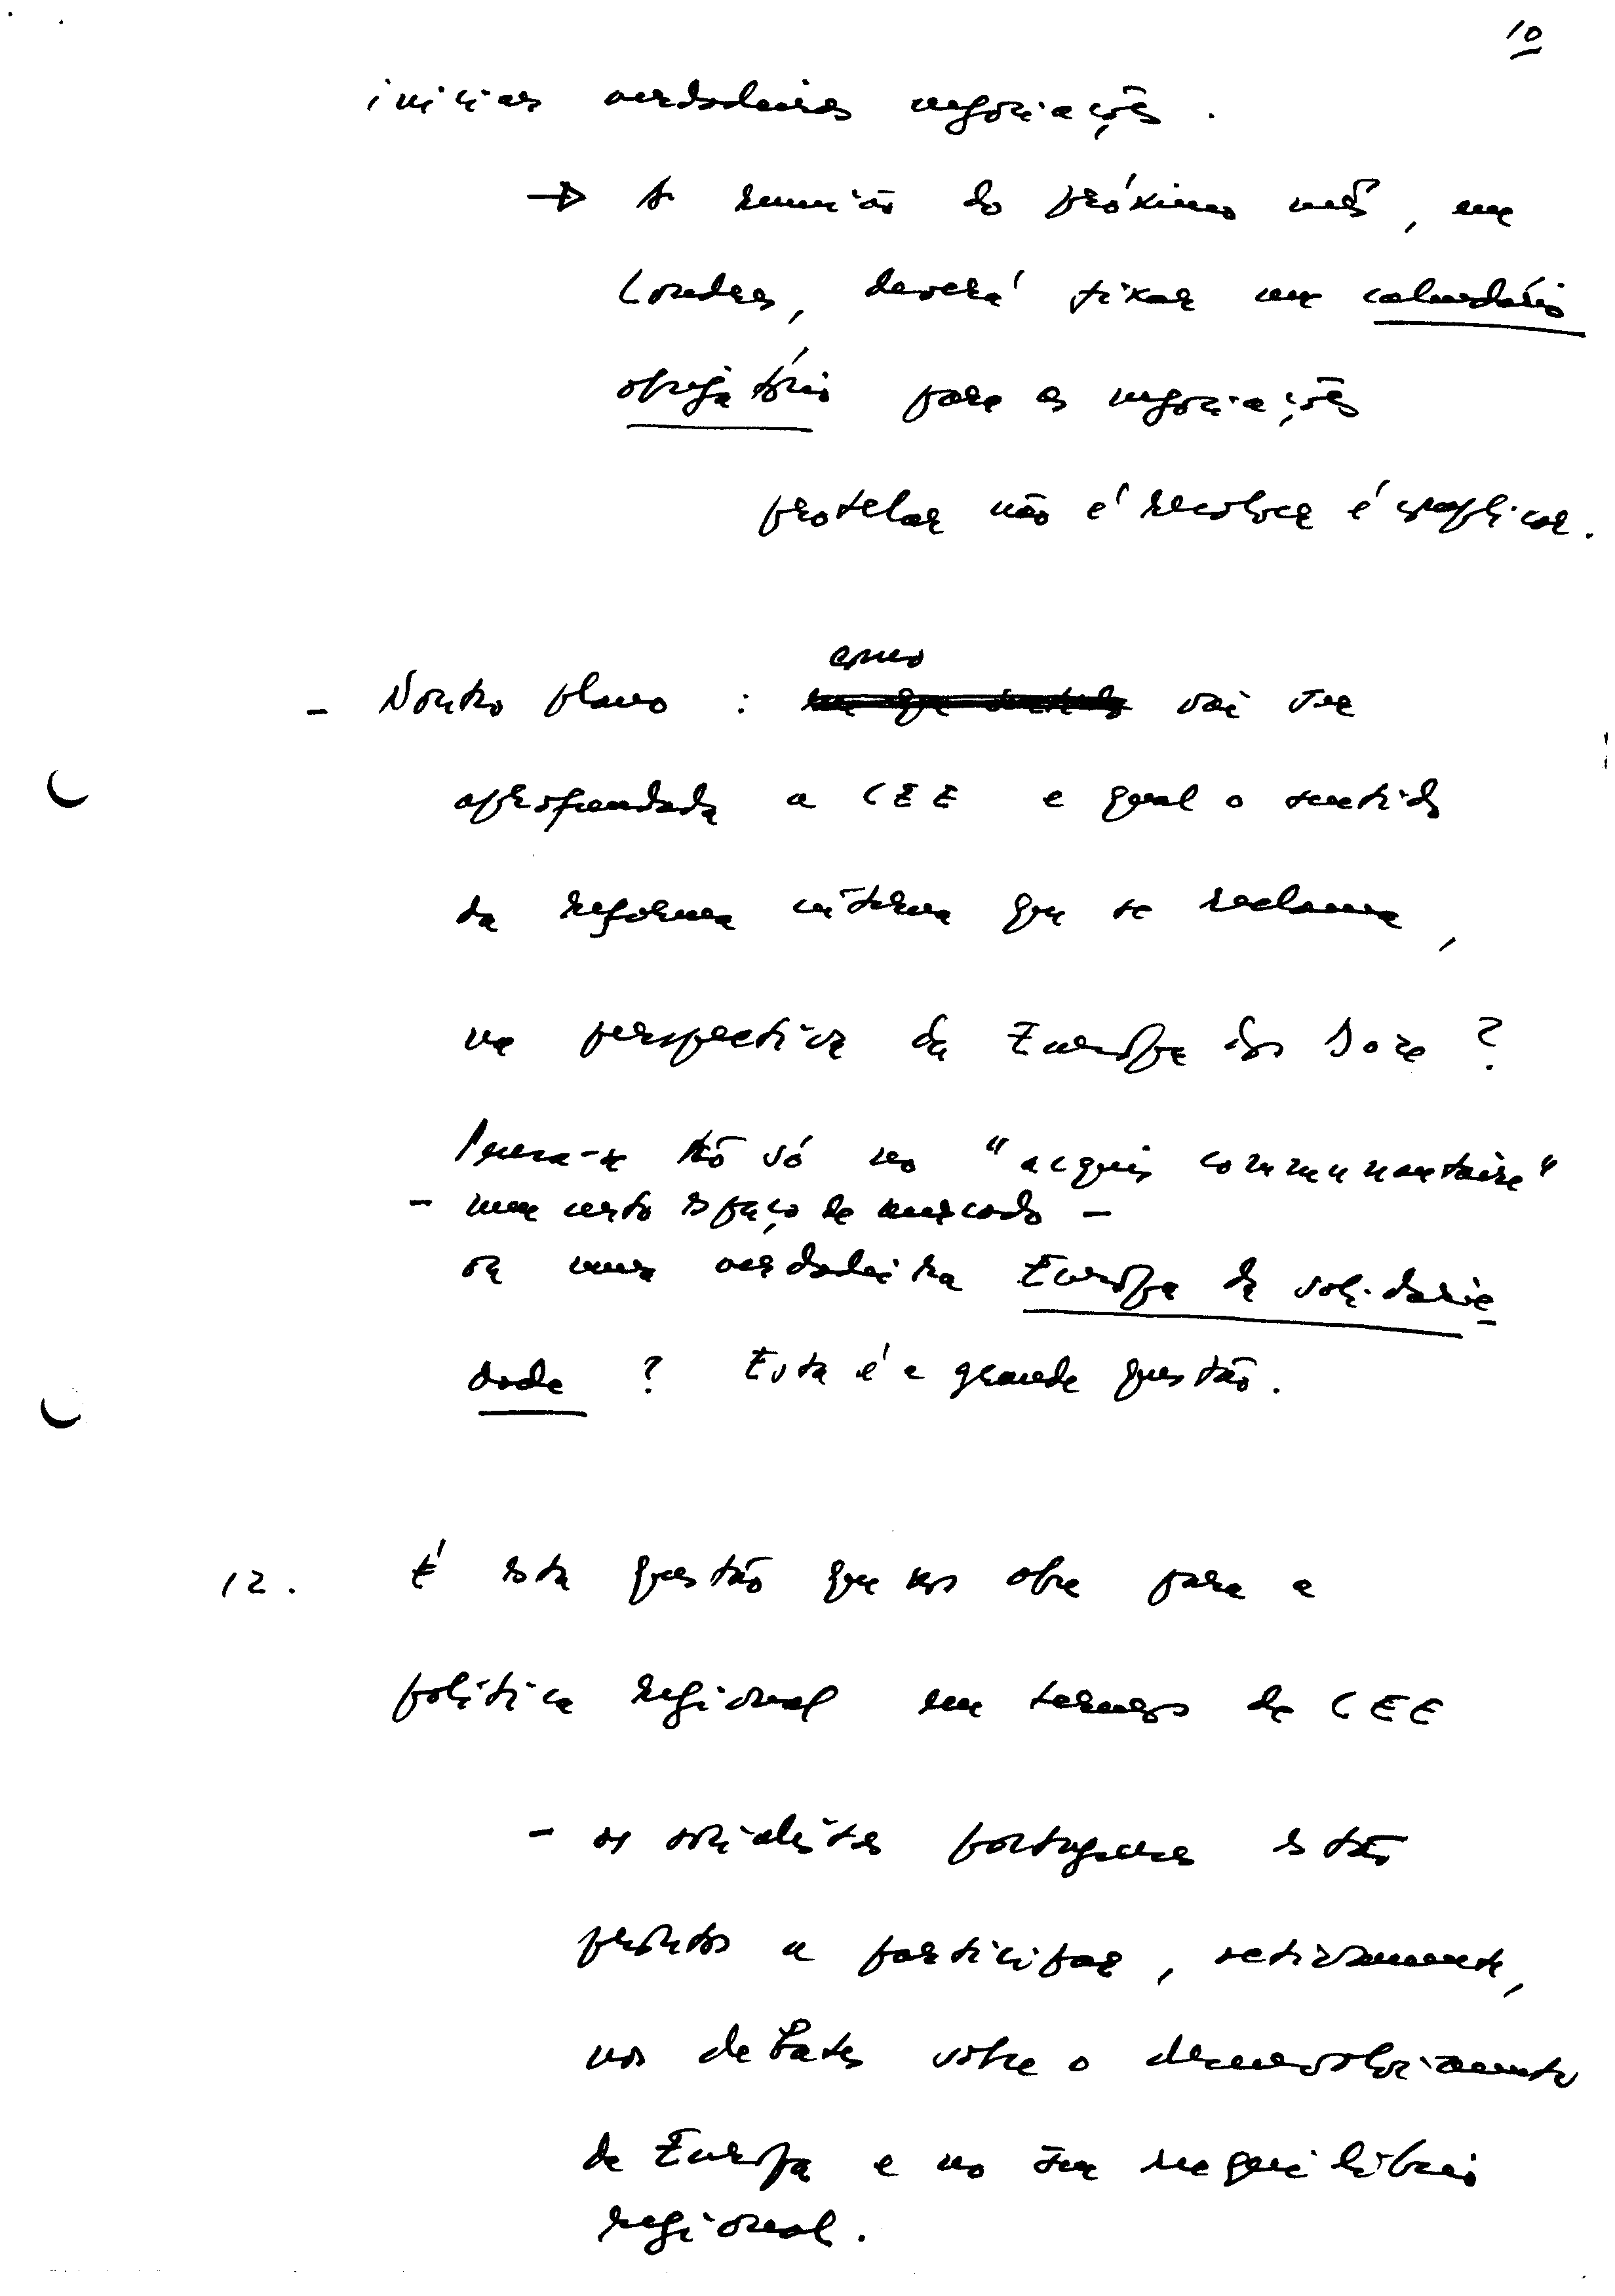 10
iniciar verdadeiras negociações.
→ A reunião do próximo mês, em
Londres, deverá fixar um calendário
obrigatório para as negociações
protelar não é resolver é complicar.
- Noutro plano : como vai ser
aprofundada a CEE e qual o sentido
da reforma interna que se reclama,
na perspectiva da Europa dos Doze ?
Pensa-se tão só no "acquis communautaire"
- num certo espaço de mercado -
ou numa verdadeira Europa da solidarie
dade ? Esta é a grande questão.
12. É esta questão que nos abre para a
política regional em termos de CEE
- os socialistas portugueses estão
prontos a participar, activamente,
nos debates sobre o desenvolvimento
da Europa e no seu reequilíbrio
regional.